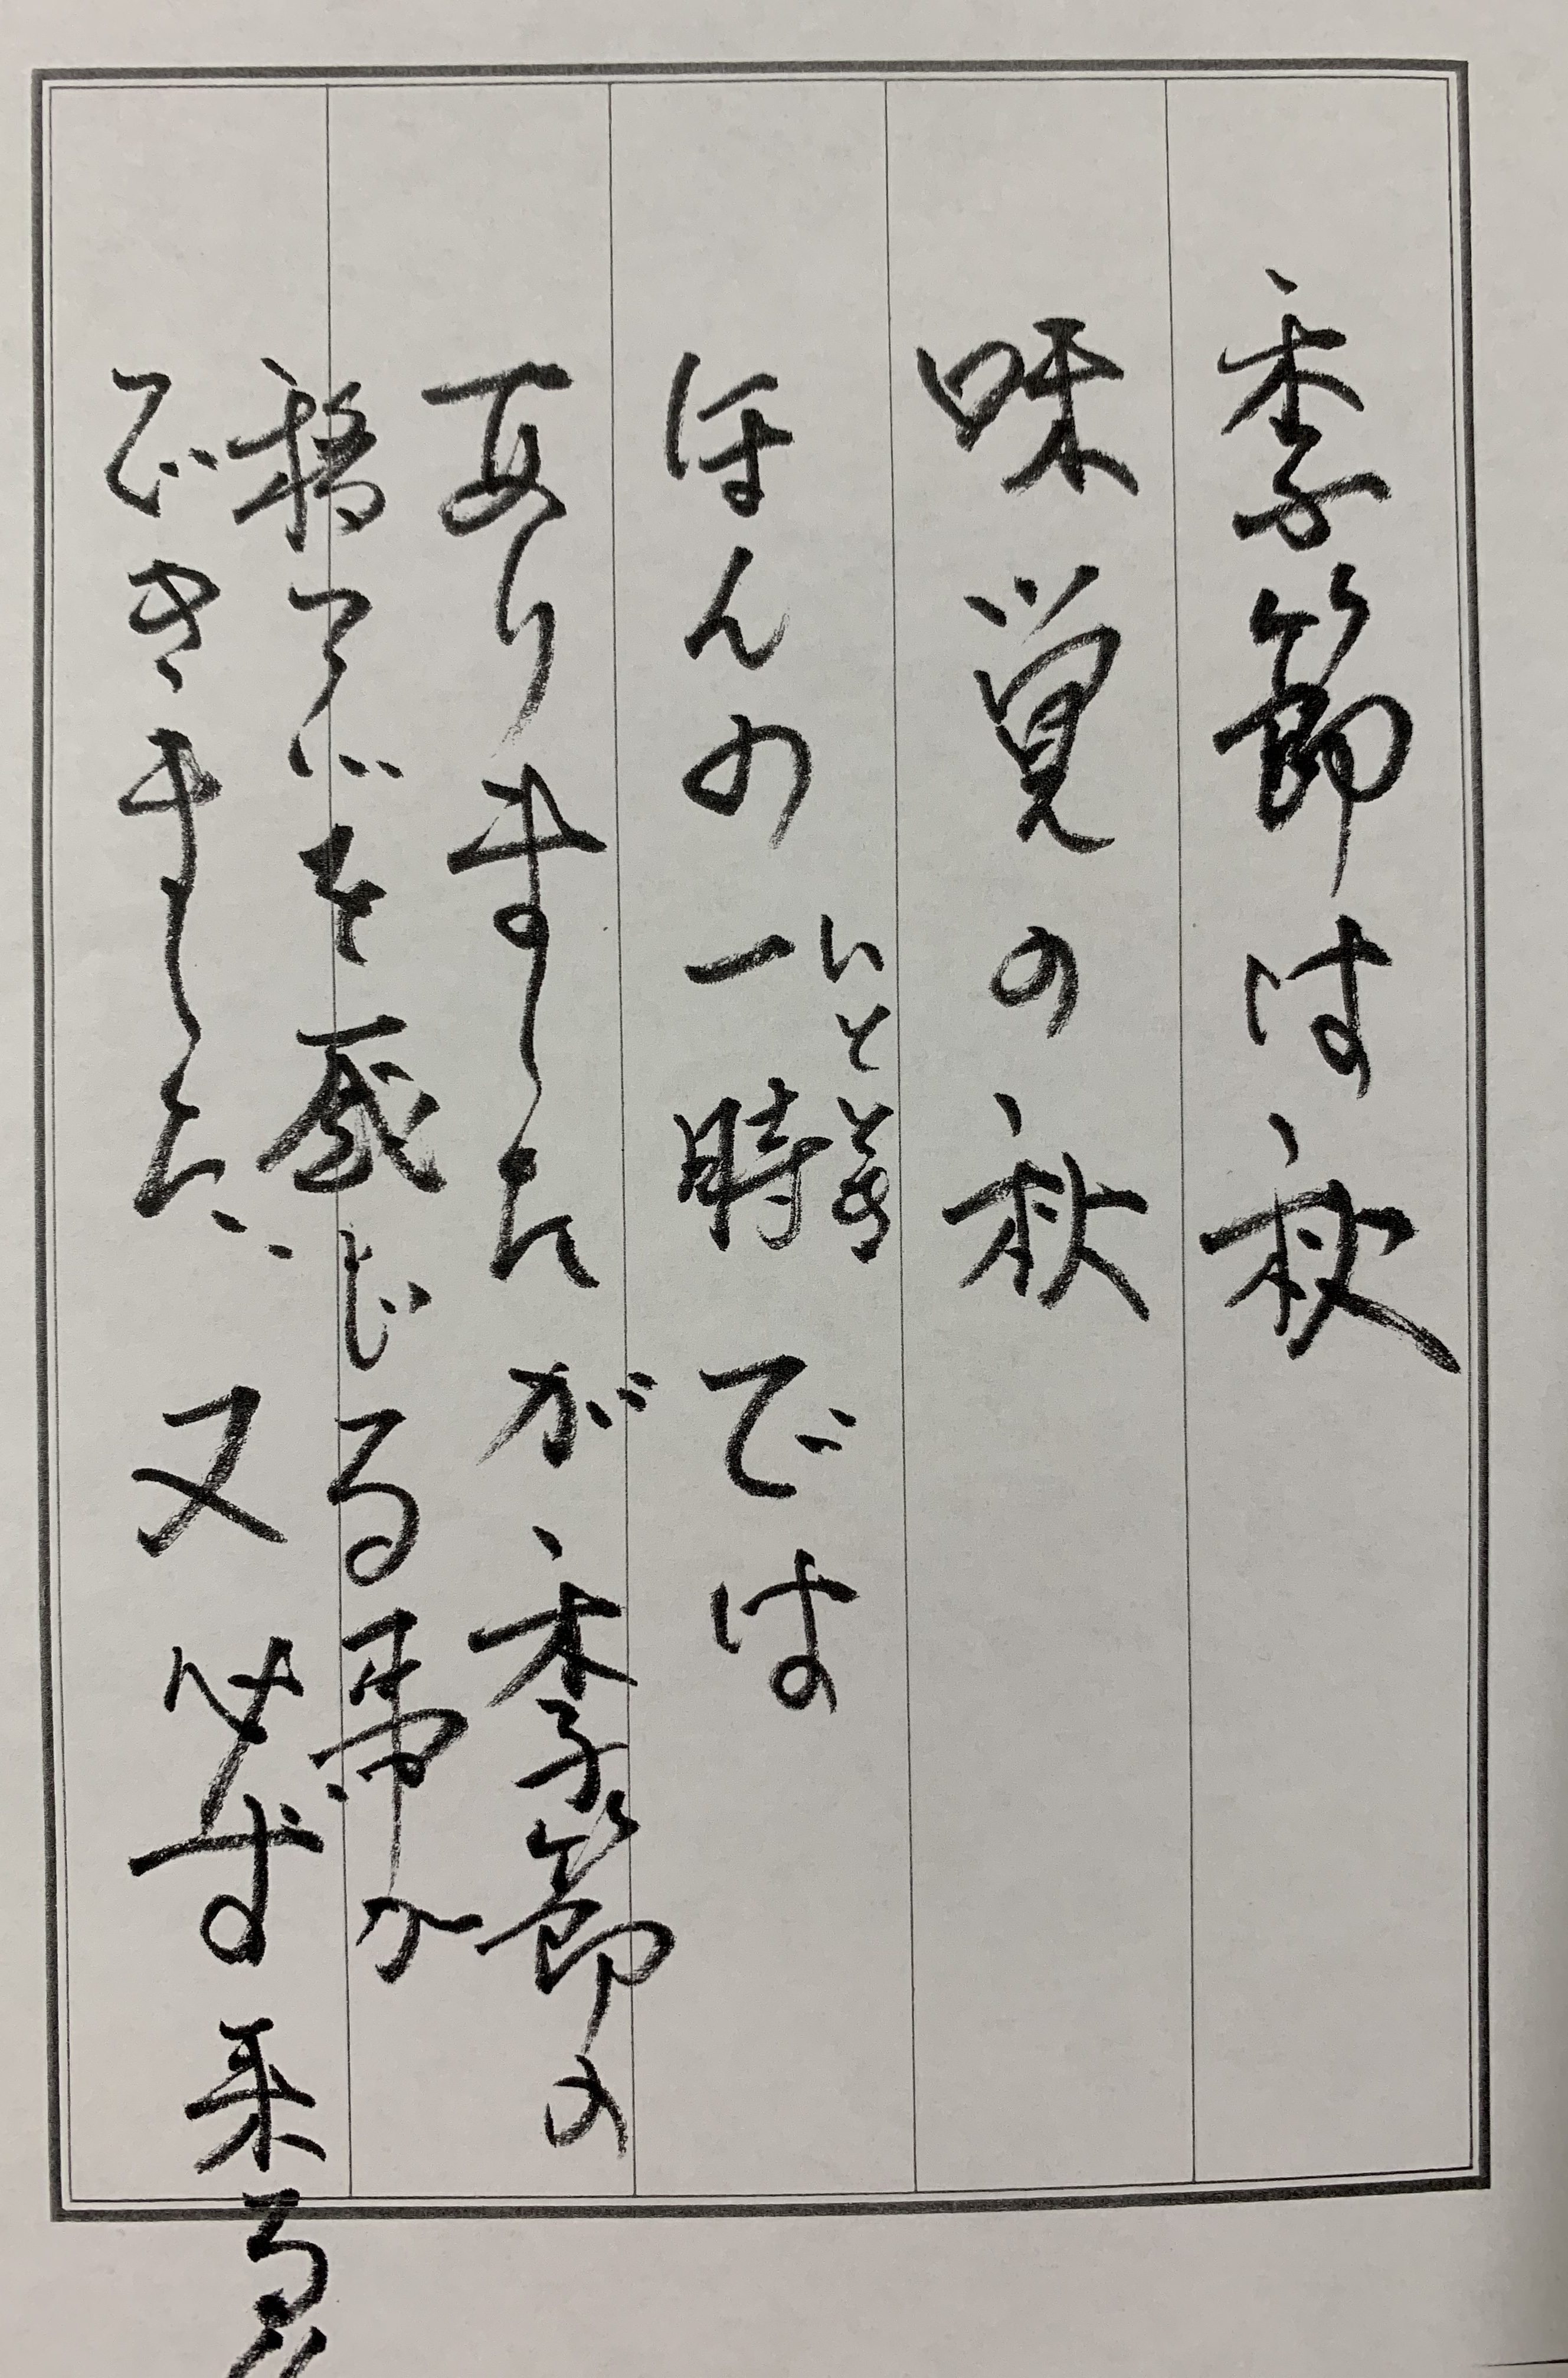 季節は秋
味覚の秋
いととき
ほんの一時では
ありましたが季節の
移ろいを感じる事か
できました..又必ず来る